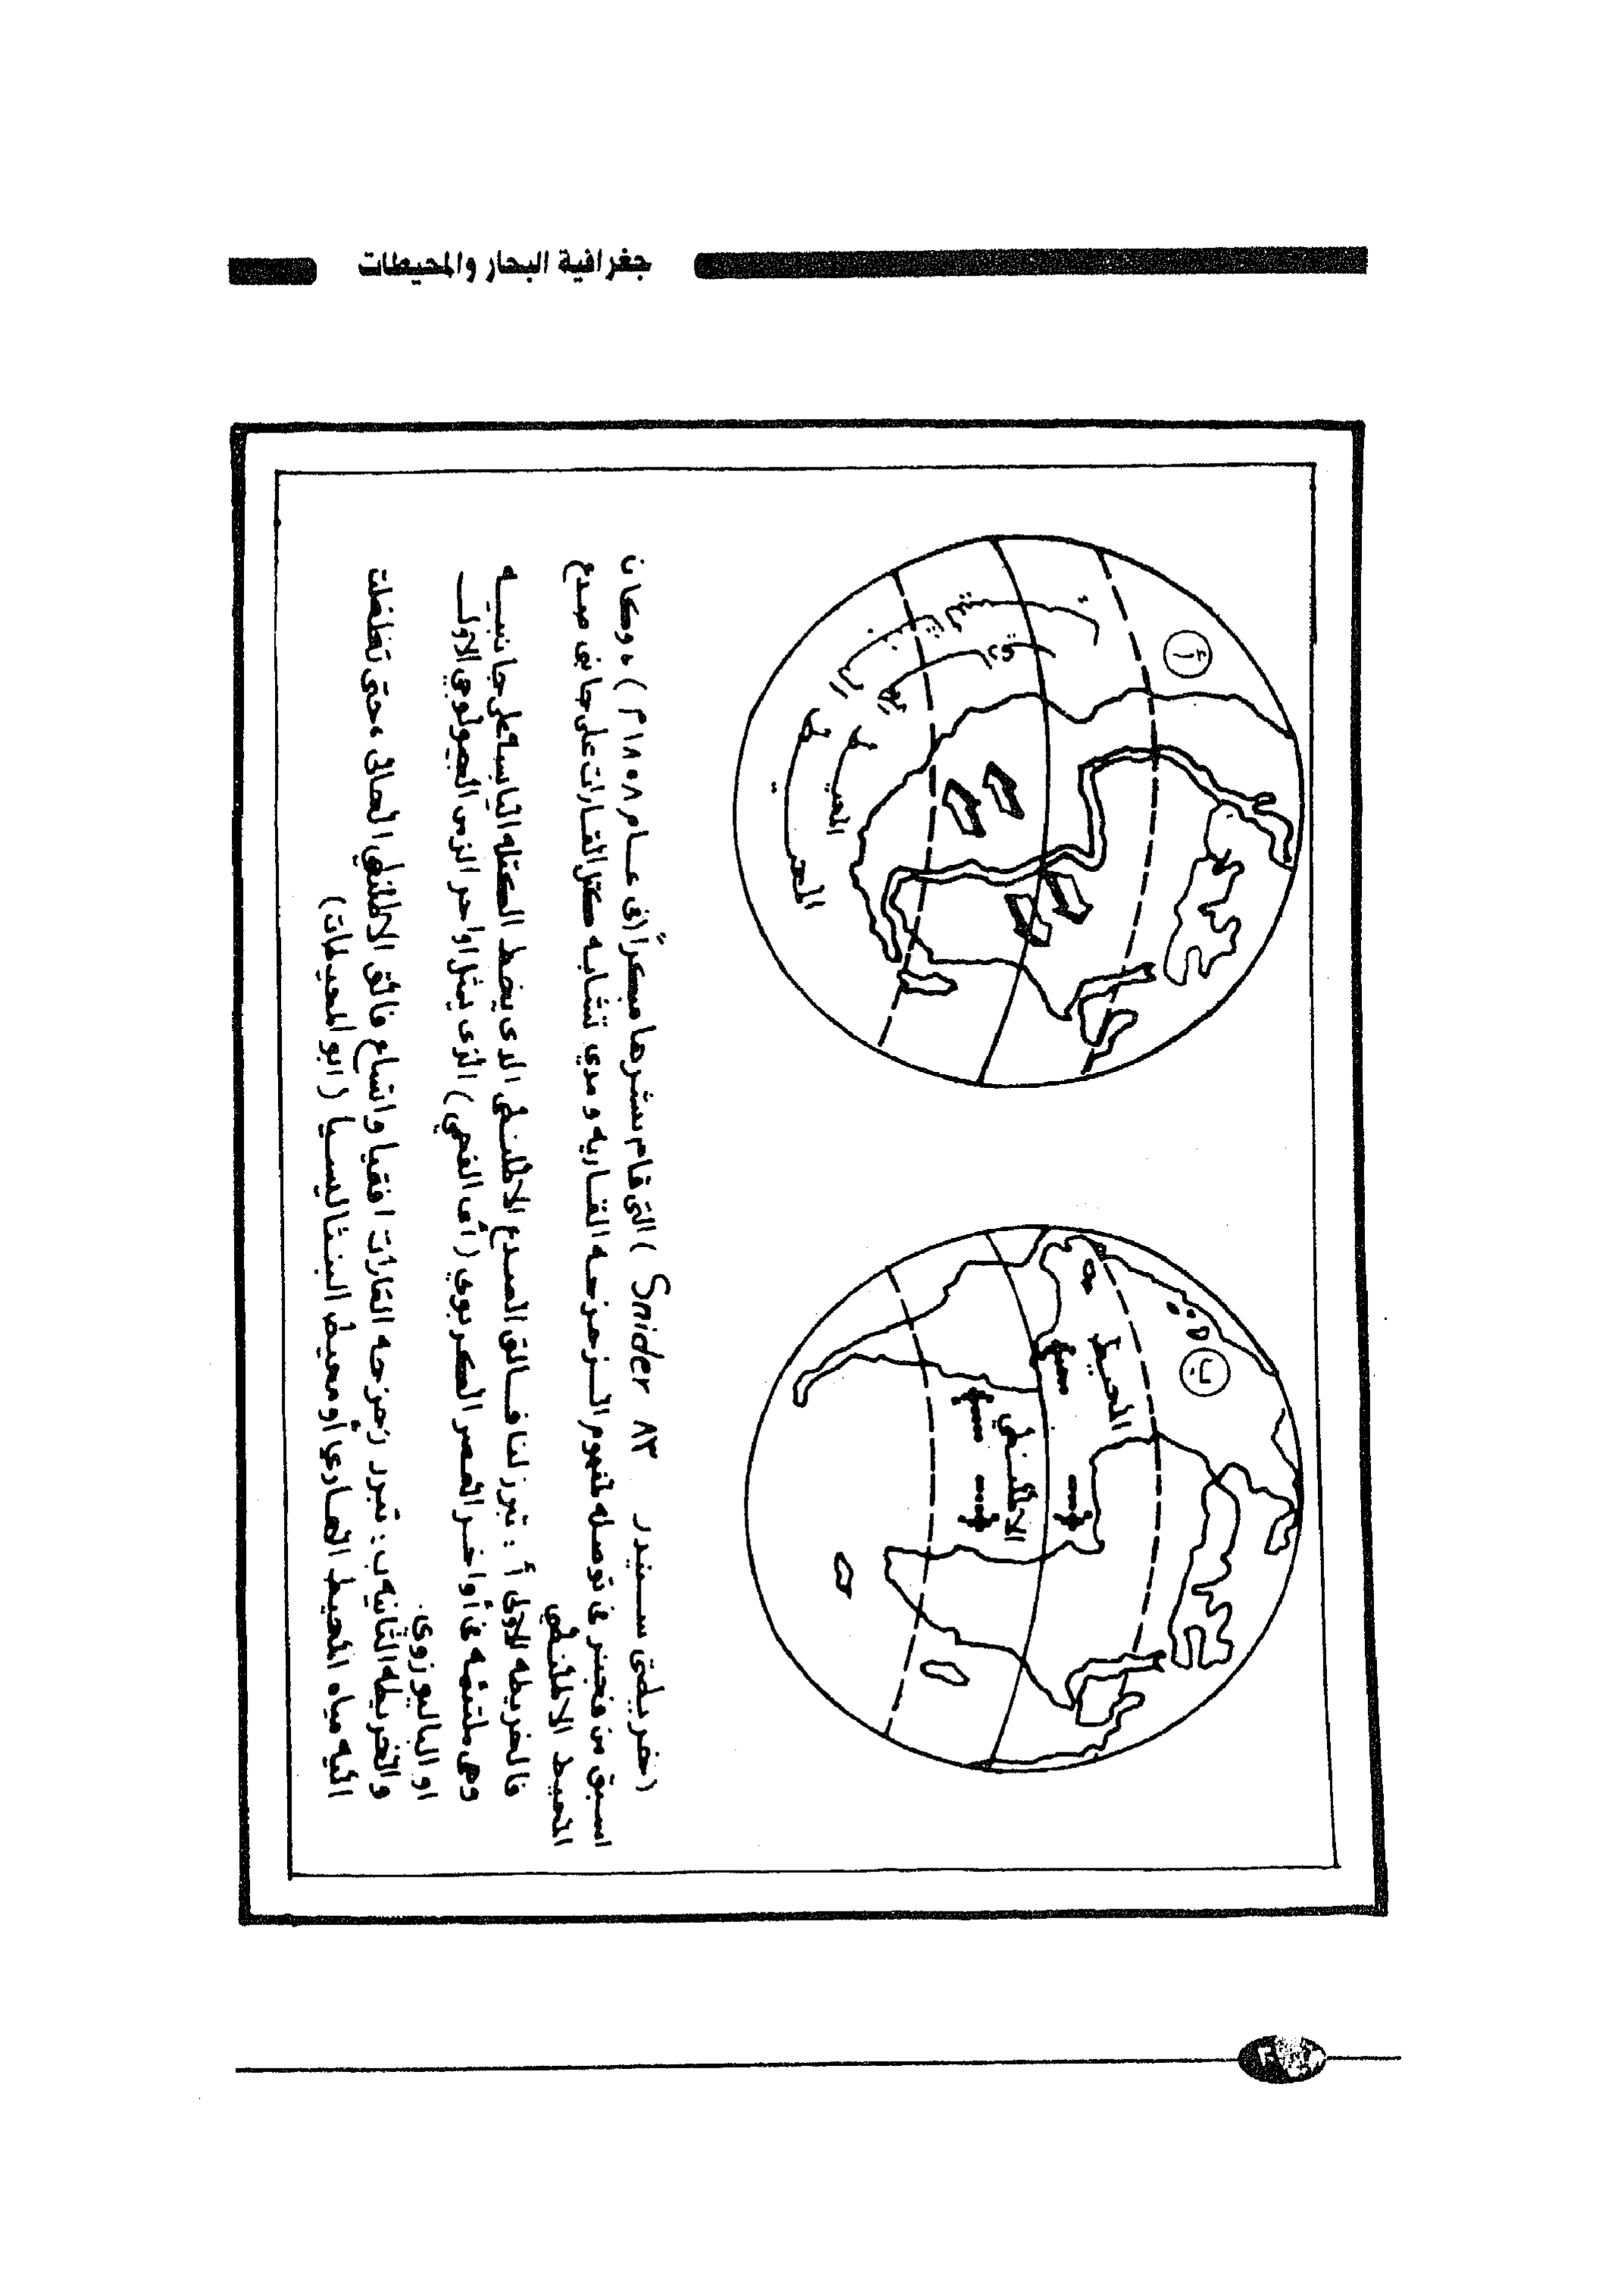 جغرافية البحار والمحيطات
أ
المحيط
الهادي
ب
المحيط
الاطلنطي
(خريطتى سنيدر Snider ٨٣) التى قام بنشرها مبكراً (فى عام ١٨٥٨م)، وكان
اسبق من فجنر فى توصله لمفهوم الزحزحه القاريه ومدي تشابه كتل القارات على جانبى صدع
المحيط الاطلنطي
فالخريطه الاولى أ: تبرز لنا فالق الصدع الاطلنطى الذى يفصل الكتله اليابسه على جانبيه
وهى ملتئمه فى أواخر العصر الكربوي (أى الفحمي) الذى يمثل اواخر الزمن الجيولوجي الاول
او الباليوزوي.
والخريطه الثانيه ب: تبرز زحزحه القارات افقيا واتساع فالق الاطلنطي الحالى، حتى تغلغلت
اليه مياه المحيط الهادي أو محيط البنثاليسيا (ابو المحيطات)